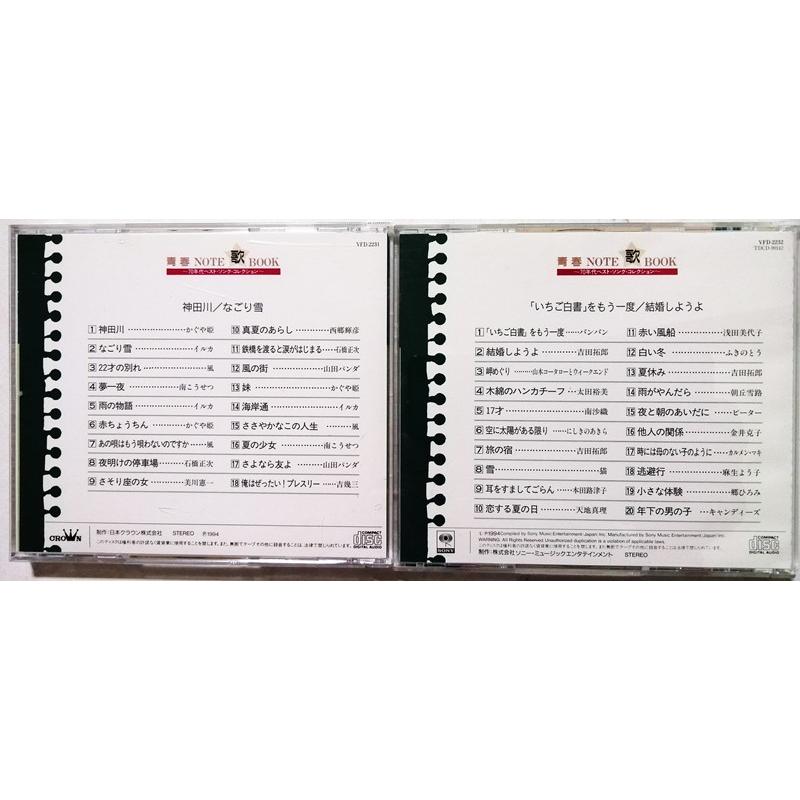 VFD-2231
青春 NOTE 歌 BOOK
〜70年代ベスト・ソング・コレクション〜
神田川/なごり雪
1 神田川……………かぐや姫
2 なごり雪……………イルカ
3 22才の別れ……………風
4 夢一夜……………南こうせつ
5 雨の物語……………イルカ
6 赤ちょうちん……………かぐや姫
7 あの唄はもう唄わないのですか……風
8 夜明けの停車場……………石橋正次
9 さそり座の女……………美川憲一
10 真夏のあらし……………西郷輝彦
11 鉄橋を渡ると涙がはじまる……石橋正次
12 風の街……………山田パンダ
13 妹……………かぐや姫
14 海岸通……………イルカ
15 ささやかなこの人生……………風
16 夏の少女……………南こうせつ
17 さよなら友よ……………山田パンダ
18 俺はぜったい!プレスリー……吉幾三
CROWN
制作:日本クラウン株式会社 STEREO ℗1994
このディスクは権利者の許諾なく賃貸業に使用することを禁じます。また、無断でテープその他に録音することは、法律で禁じられています。
COMPACT
disc
DIGITAL AUDIO
VFD-2232
TDCD-90142
青春 NOTE 歌 BOOK
〜70年代ベスト・ソング・コレクション〜
「いちご白書」をもう一度/結婚しようよ
1 「いちご白書」をもう一度……バンバン
2 結婚しようよ……………吉田拓郎
3 岬めぐり………山本コータローとウィークエンド
4 木綿のハンカチーフ……太田裕美
5 17才……………南沙織
6 空に太陽がある限り……にしきのあきら
7 旅の宿……………吉田拓郎
8 雪……………猫
9 耳をすましてごらん……本田路津子
10 恋する夏の日……………天地真理
11 赤い風船……………浅田美代子
12 白い冬……………ふきのとう
13 夏休み……………吉田拓郎
14 雨がやんだら……………朝丘雪路
15 夜と朝のあいだに……………ピーター
16 他人の関係……………金井克子
17 時には母のない子のように……カルメン・マキ
18 逃避行……………麻生よう子
19 小さな体験……………郷ひろみ
20 年下の男の子……キャンディーズ
SONY
℗1994 Compiled by Sony Music Entertainment (Japan) Inc. Manufactured by Sony Music Entertainment (Japan) Inc.
WARNING: All Rights Reserved. Unauthorized duplication is a violation of applicable laws.
このディスクは権利者の許諾なく賃貸業に使用することを禁じます。また、無断でテープその他に録音することは、法律で禁じられています。
制作:株式会社ソニー・ミュージックエンタテインメント STEREO
COMPACT
disc
DIGITAL AUDIO